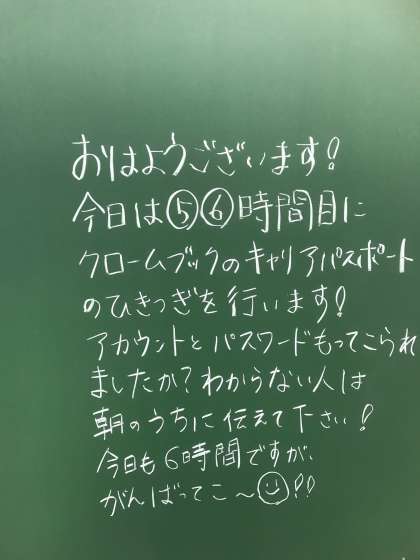 おはようございます!
今日は⑤⑥時間目に
クロームブックのキャリアパスポート
のひきつぎを行います!
アカウントとパスワードもってこられ
ましたか?わからない人は
朝のうちに伝えて下さい!
今日も6時間ですが、
がんばってこ〜☺!!